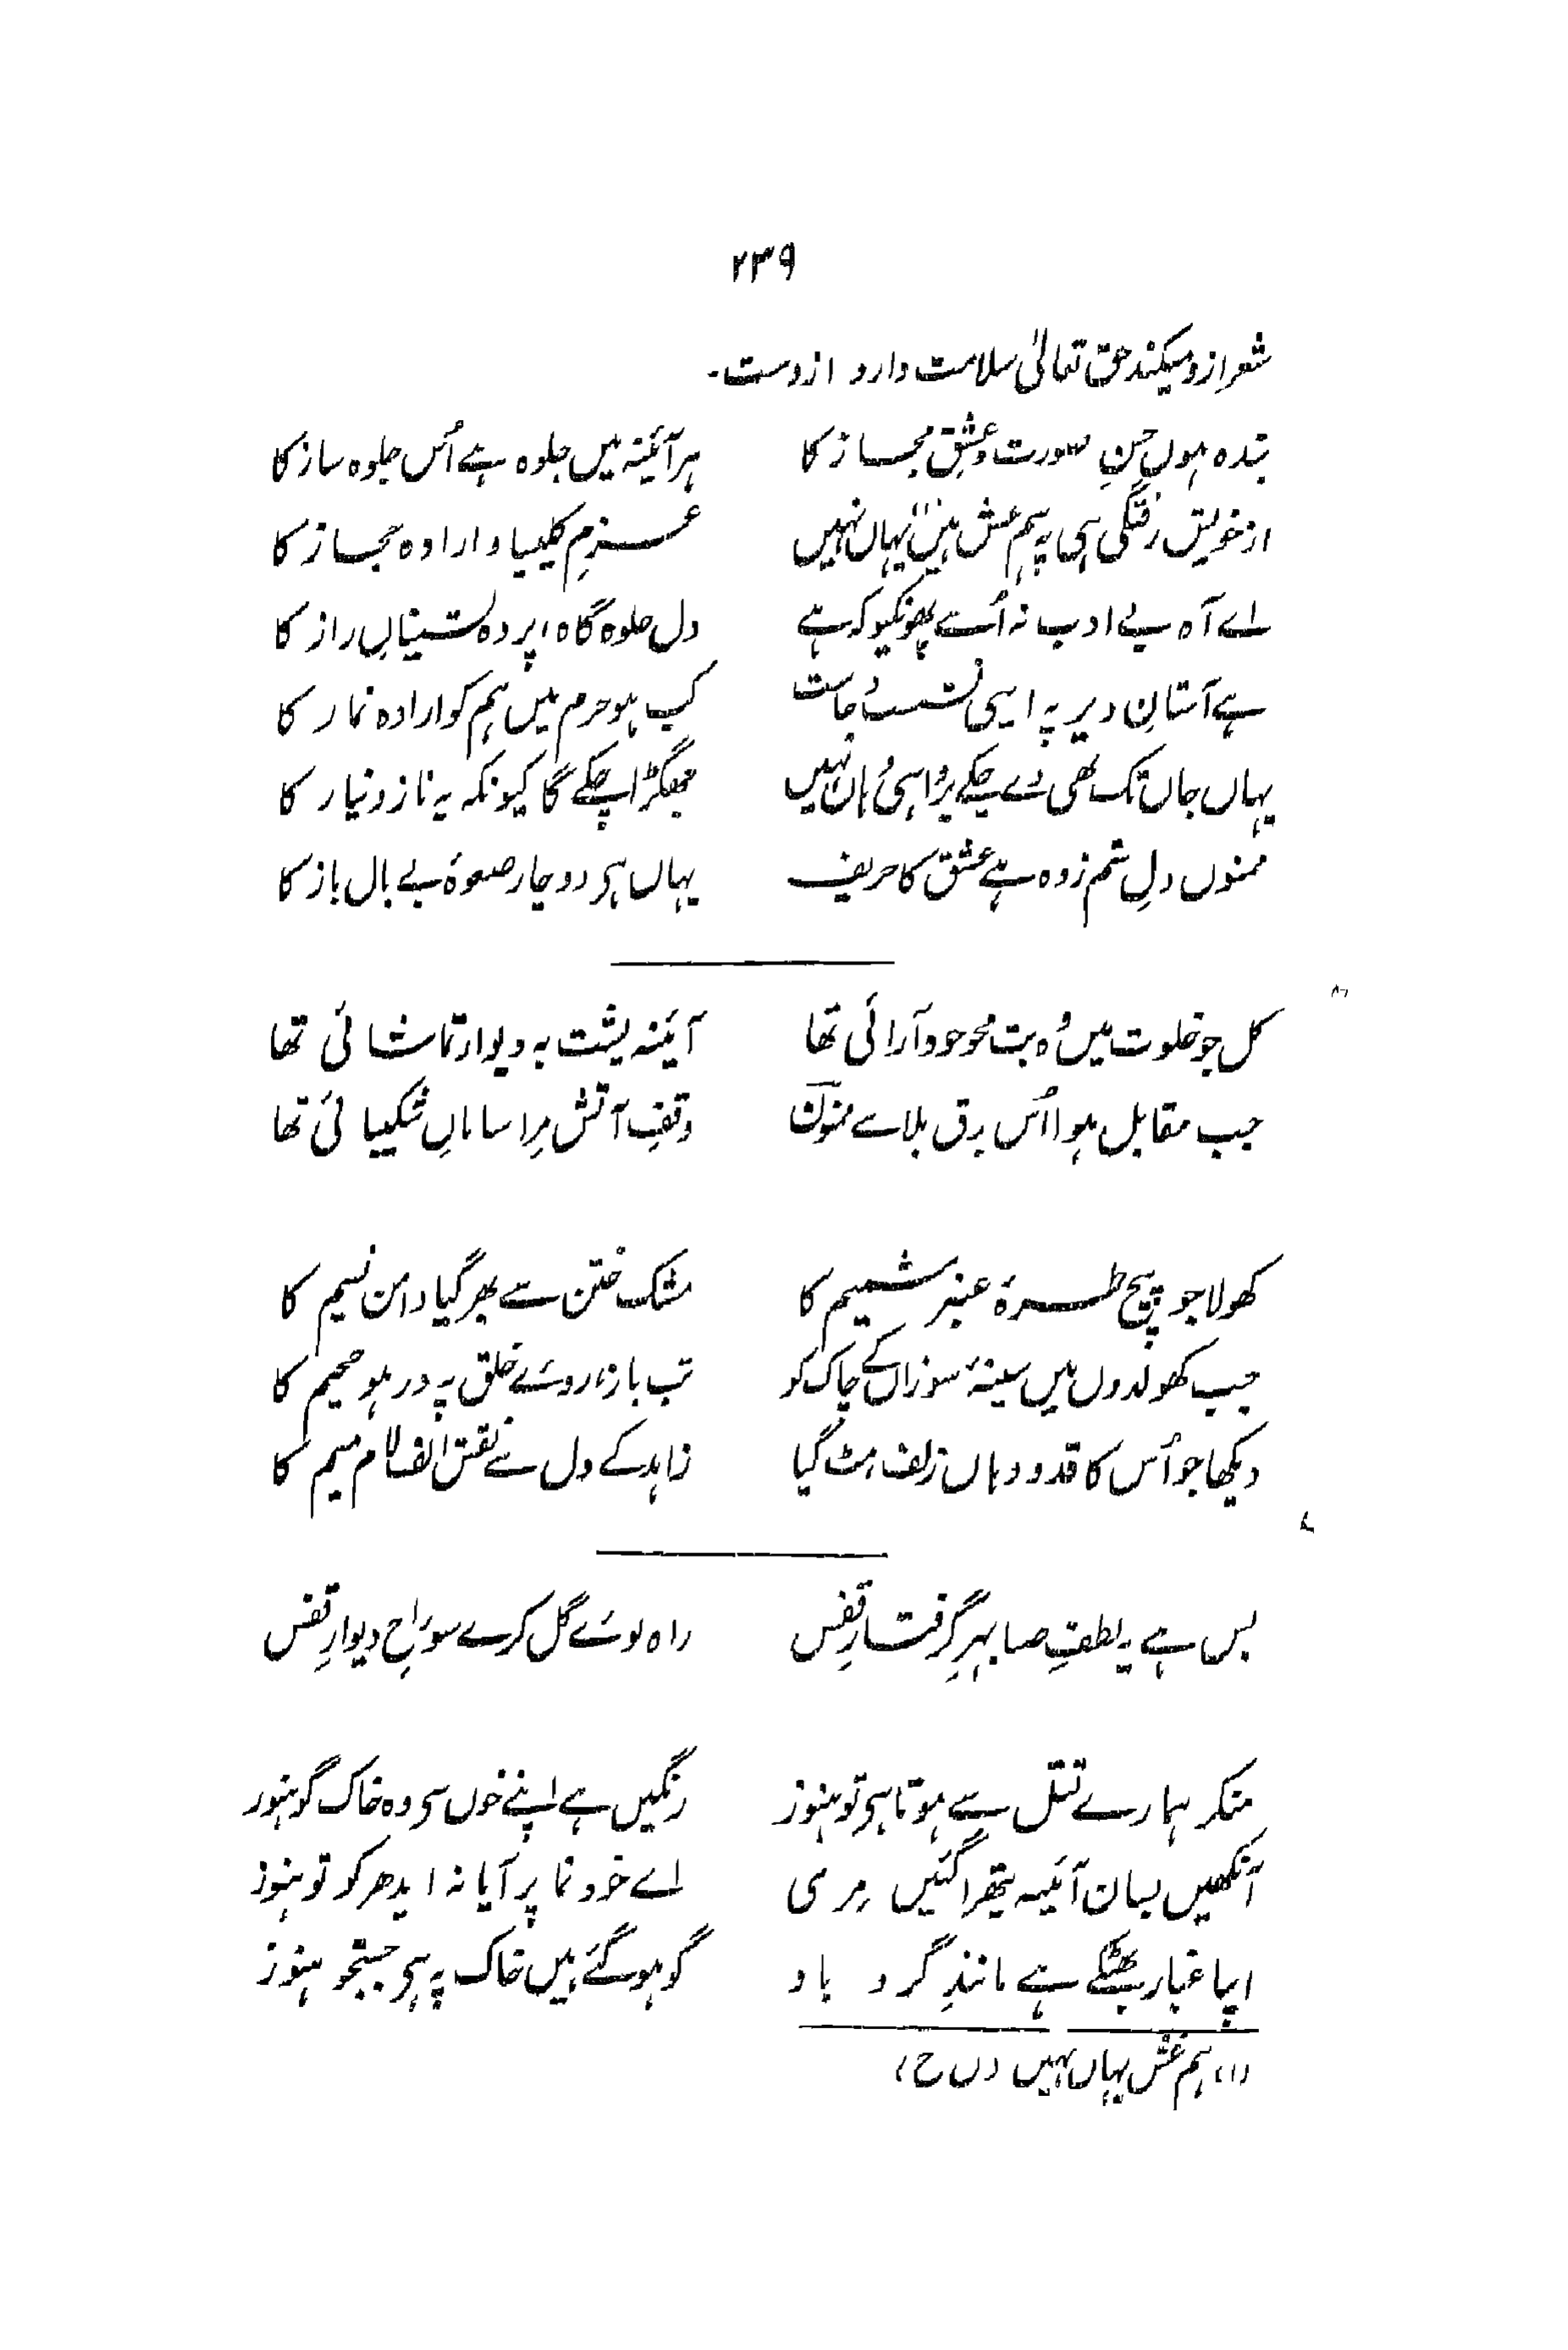 ۲۳۹
شعر ازو میکند حق تعالیٰ سلامت دارد ازوست۔
بندہ ہوں حسنِ صورت و عشقِ مجاز کا ہر آئینہ میں جلوہ ہے اُس جلوہ ساز کا
از خویش رفتگی ہی پہ ہم عش ہیں یہاں نہیں عزمِ کلیسیا و ارادہ حجاز کا
اے آہ بے ادب نہ اُسے پھونکیو کہ ہے دل جلوہ گاہ پردہ نشینانِ راز کا
ہے آستانِ دیر پہ ایسی نشست کب ہو حرم میں ہم کو ارادہ نماز کا
یہاں جاں تک بھی دے چکے پر واں نہیں جھگڑا چکے گا کیونکہ یہ ناز و نیاز کا
ممنوں دلِ ستم زدہ ہے عشق کا حریف یہاں ہی دو چار صعوۂ بے بال باز کا
کل جو خلوت میں وہ بت محو خود آرائی تھا آئینہ پشت بہ دیوار تماشائی تھا
جب مقابل ہوا اُس برق بلا سے ممنوں وقفِ آتش مِرا سامانِ شکیبائی تھا
کھولا جو پیچ طرۂ عنبر شمیم کا مشک ختن سے بھر گیا دامن نسیم کا
جب کھولدوں میں سینۂ سوزاں کے چاک کو تب باز روئے خلق پہ در ہو جحیم کا
دیکھا جو اُس کا قد و دہاں زلف مٹ گیا زاہد کے دل سے نقش الف لام میم کا
بس ہے یہ لطفِ صبا بہرِ گرفتارِ قفس راہ بوئے گل کرے سوراخِ دیوارِ قفس
منکر ہمارے قتل سے ہوتا ہی تو ہنوز رنگیں ہے اپنے خوں سی وہ خاک گو ہنوز
آنکھیں بسان آئینہ پتھرا گئیں مری اے خود نما پر آیا نہ ایدھر کو تو ہنوز
اپنا غبار بھٹکے ہے مانندِ گرد باد گو ہو گئے ہیں خاک پہ ہی جستجو ہنوز
(۱) ہم غش یہاں نہیں (ن ح)